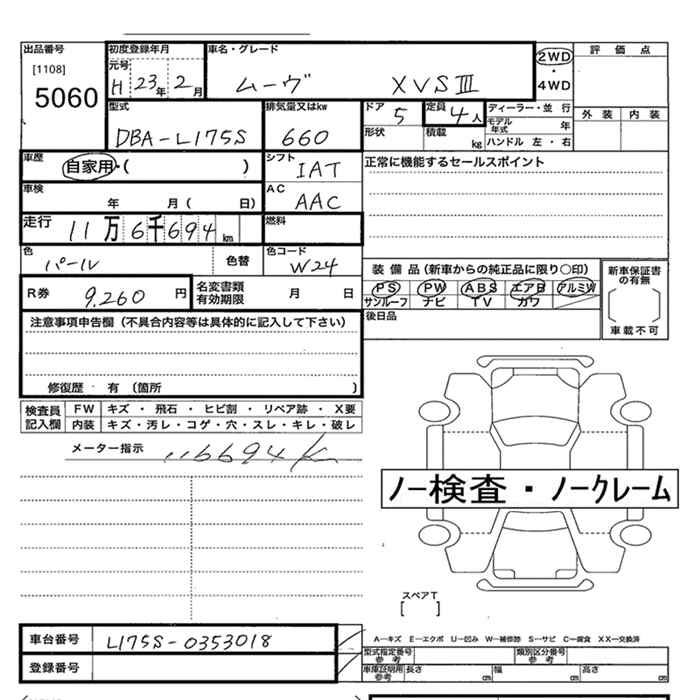 出品番号 初度登録年月 車名・グレード 2WD 評価点
[1108] 元号
5060 H 23年 2月 ムーヴ XVSⅢ 4WD
型式 排気量又はkw ドア 5 定員 4人 ディーラー・並行 外装 内装
DBA-L175S 660 形状 積載 kg モデル年式 年
ハンドル 左・右
車歴 自家用・( ) シフト IAT 正常に機能するセールスポイント
車検 年 月( 日) AC AAC
走行 11万6千694km 燃料
色 パール 色替 色コード W24
装備品(新車からの純正品に限り〇印) 新車保証書の有無
R券 9,260円 名変書類有効期限 月 日 PS PW ABS エアB アルミW
サンルーフ ナビ TV カワ 車載不可
注意事項申告欄(不具合内容等は具体的に記入して下さい) 後日品
修復歴・有(箇所 )
検査員記入欄 FW キズ・飛石・ヒビ割・リペア跡・X要
内装 キズ・汚レ・コゲ・穴・スレ・キレ・破レ
メーター指示 116694K
ノー検査・ノークレーム
スペアT
[ ]
車台番号 L175S-0353018 A―キズ E―エクボ U―凹み W―補修跡 S―サビ C―腐食 XX―交換済
登録番号 型式指定番号参考 類別区分番号参考
車庫証明用参考 長さ cm 幅 cm 高さ cm